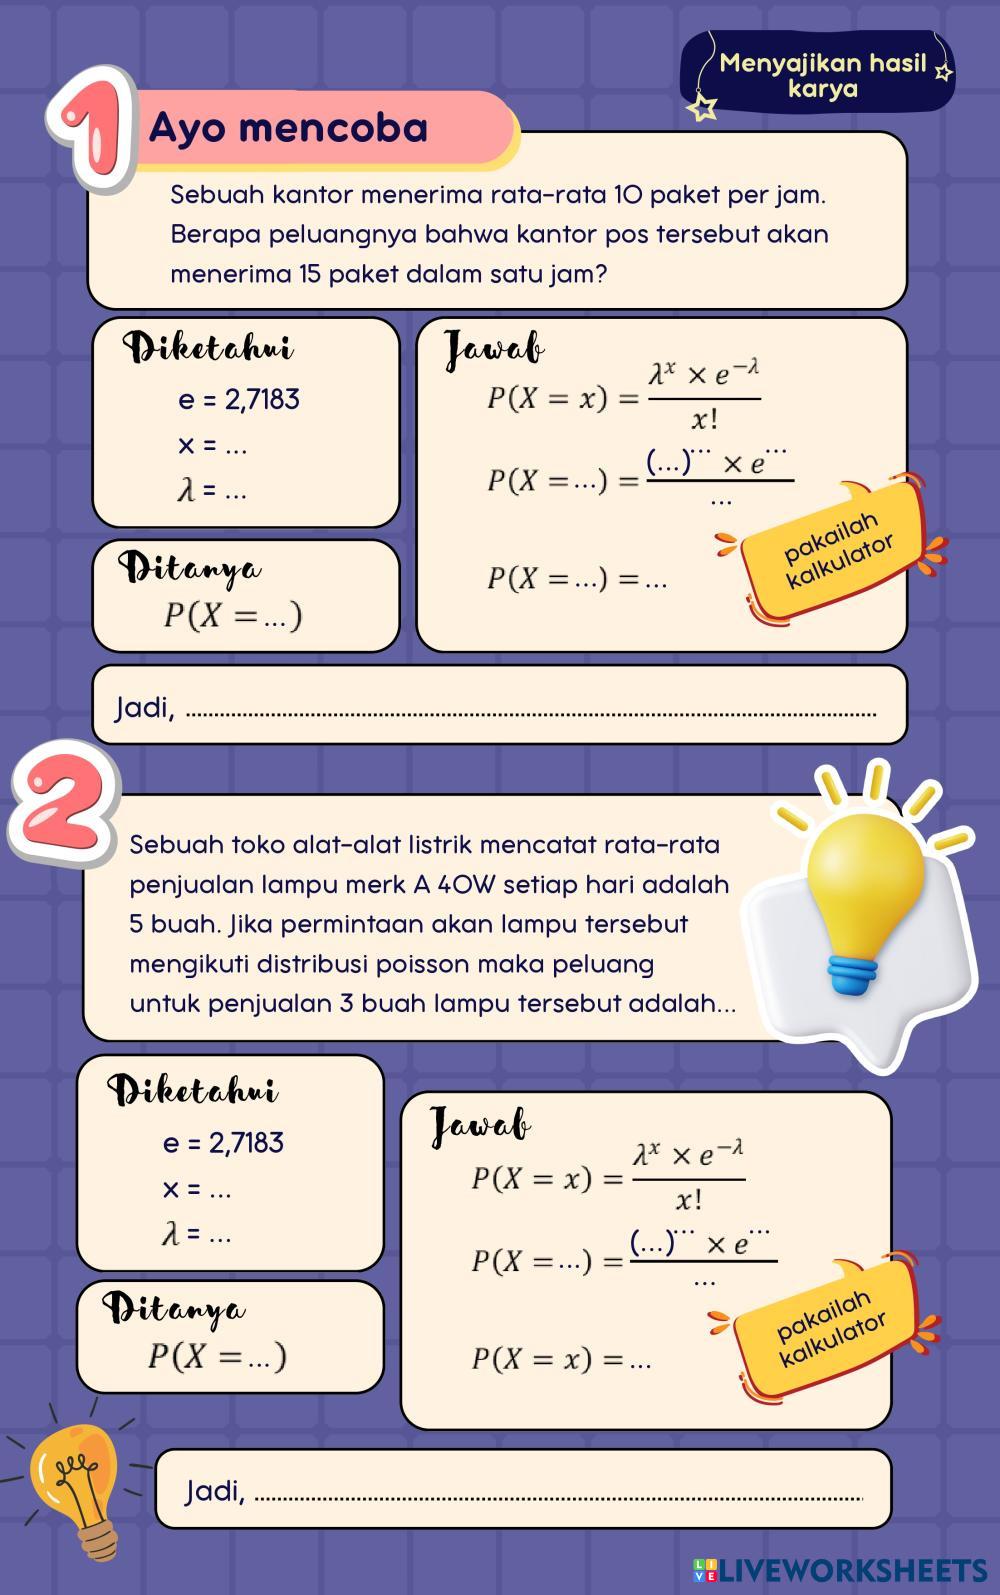 Menyajikan hasil
karya
1
Ayo mencoba
Sebuah kantor menerima rata-rata 10 paket per jam.
Berapa peluangnya bahwa kantor pos tersebut akan
menerima 15 paket dalam satu jam?
Diketahui
e = 2,7183
x = ...
λ = ...
Ditanya
P(X = ...)
Jawab
P(X = x) = λ^x × e^−λ / x!
P(X = ...) = (...)^... × e^... / ...
P(X = ...) = ...
pakailah
kalkulator
Jadi, ............................................................
2
Sebuah toko alat-alat listrik mencatat rata-rata
penjualan lampu merk A 40W setiap hari adalah
5 buah. Jika permintaan akan lampu tersebut
mengikuti distribusi poisson maka peluang
untuk penjualan 3 buah lampu tersebut adalah...
Diketahui
e = 2,7183
x = ...
λ = ...
Ditanya
P(X = ...)
Jawab
P(X = x) = λ^x × e^−λ / x!
P(X = ...) = (...)^... × e^... / ...
P(X = x) = ...
pakailah
kalkulator
Jadi, ............................................................
LIVE LIVEWORKSHEETS